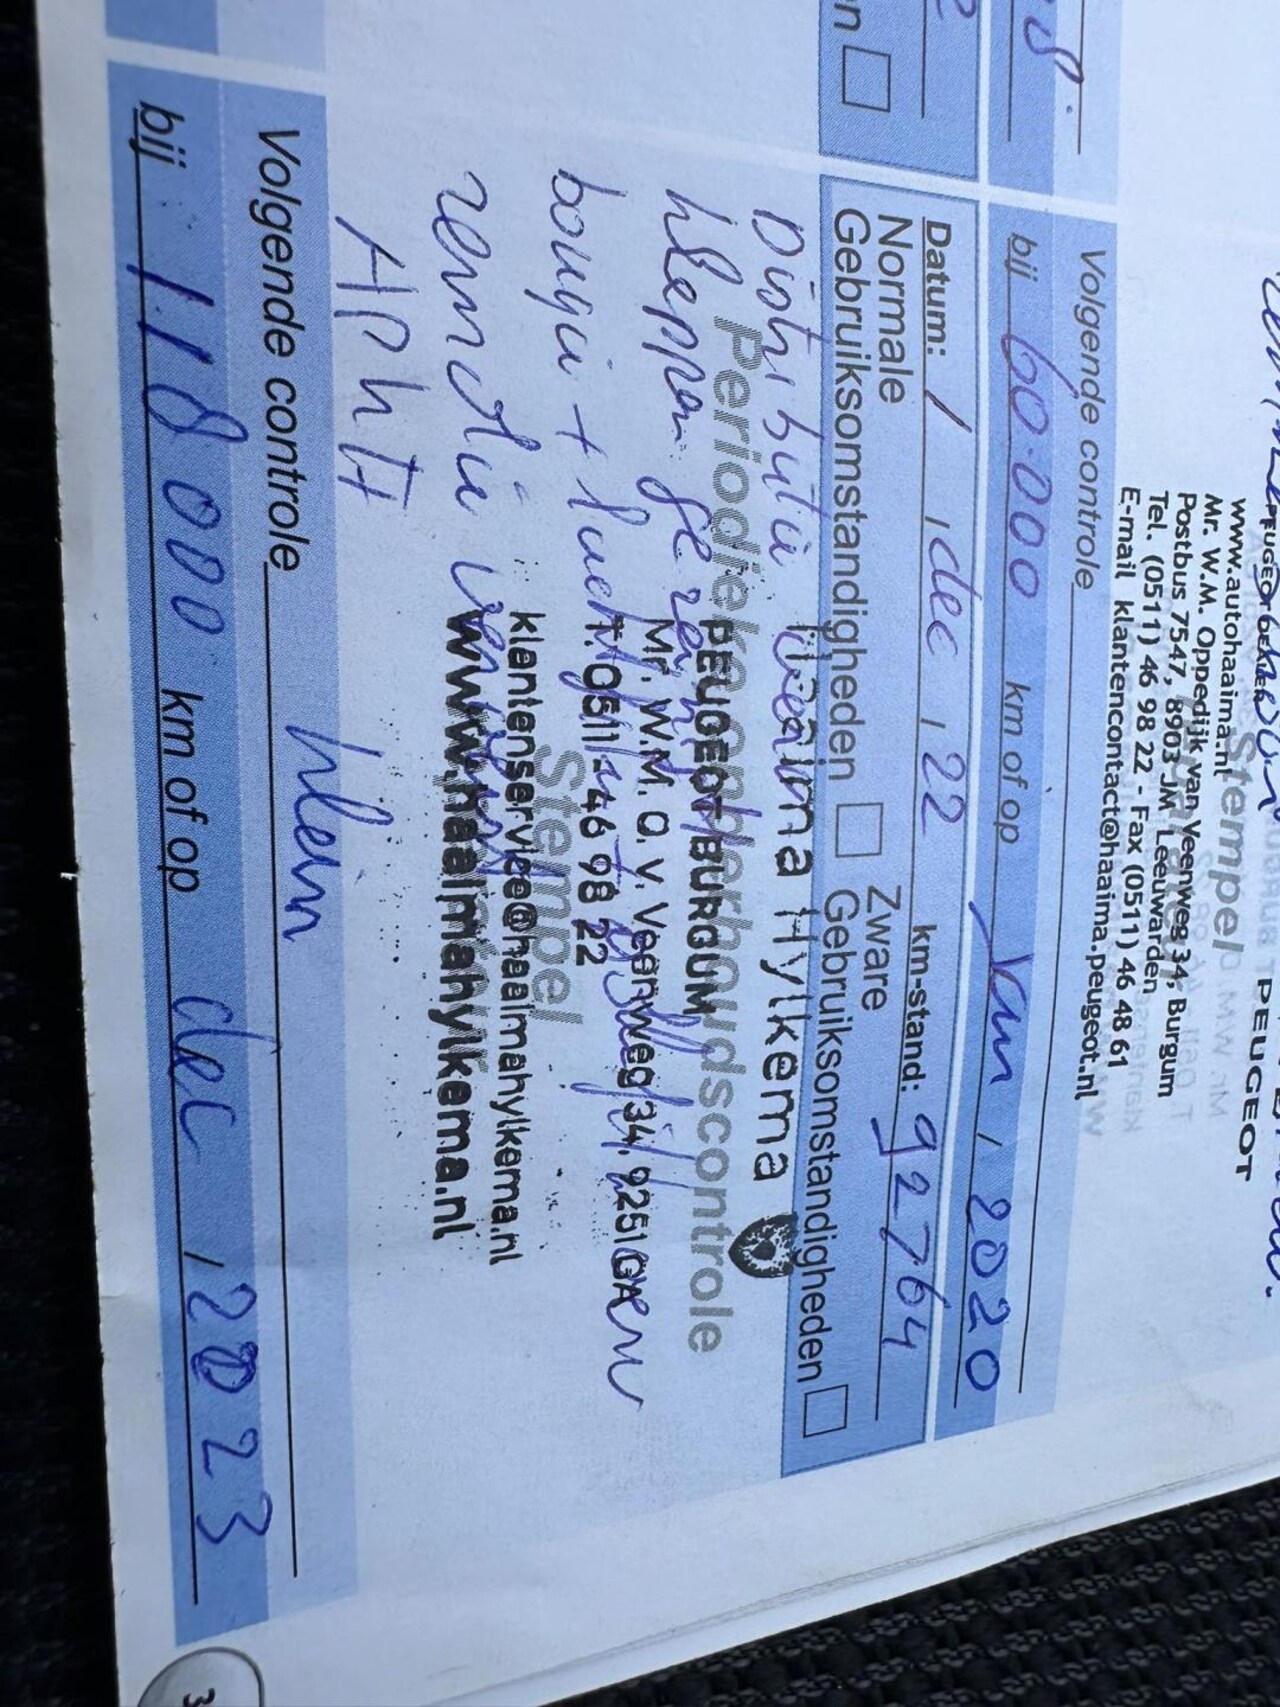 PEUGEOT
www.autohaaima.nl
Mr. W.M. Oppedijk van Veenweg 34, Burgum
Postbus 7547, 8903 JM Leeuwarden
Tel. (0511) 46 98 22 - Fax (0511) 46 48 61
E-mail klantencontact@haaima.peugeot.nl
Stempel
Volgende controle
bij 60.000 km of op Jan, 2020
Datum: 1, dec, 22 km-stand: 92764
Normale
Gebruiksomstandigheden
Zware
Gebruiksomstandigheden
Haaima Hylkema
Distributie riem
Periodiek onderhoudscontrole
PEUGEOT BURGUM
kleppen gereinigd
Mr. W.M. O. v. Veenweg 34, 9251GA
bougie + luchtfilter
T. 0511-46 98 22
Stempel
klantenservice@haaimahylkema.nl
remolie
www.haaimahylkema.nl
APHA
Volgende controle klein
bij 118000 km of op dec, 2023
3